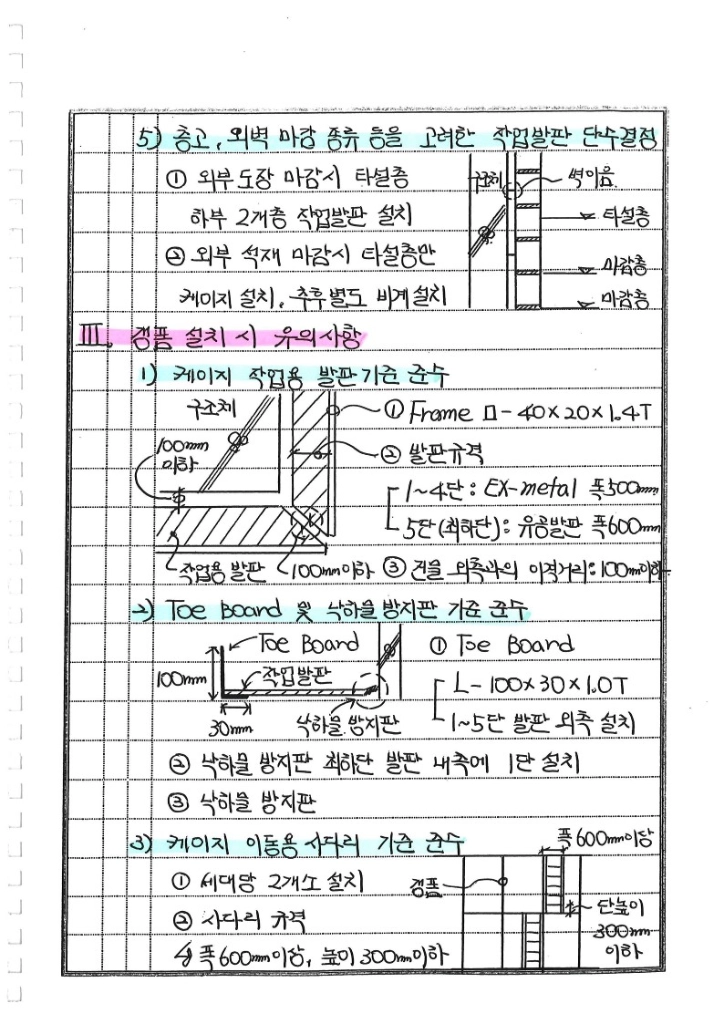 5) 층고, 외벽 마감 종류 등을 고려한 작업발판 단수결정
① 외부도장 마감시 타설층
하부 2개층 작업발판 설치
② 외부 석재 마감시 타설층만
케이지 설치, 추후 별도 비계설치
구조체
벽이음
타설층
마감층
마감층
Ⅲ. 갱폼 설치 시 유의사항
1) 케이지 작업용 발판기준 준수
구조체
100mm
이하
작업용 발판
100mm이하
① Frame ㅁ-40×20×1.4T
② 발판규격
1~4단: EX-metal 폭500mm
5단(최하단): 유공발판 폭600mm
③ 건물 외측과의 이격거리:100m이하
2) Toe Board 및 낙하물방지판 기준 준수
Toe Board
100mm
작업발판
30mm
낙하물 방지판
① Toe Board
L-100×30×1.0T
1~5단 발판 외측 설치
② 낙하물 방지판 최하단 발판 내측에 1단 설치
③ 낙하물 방지판
3) 케이지 이동용 사다리 기준 준수
① 세대당 2개소 설치
② 사다리 규격
폭600mm이상, 높이 300mm이하
갱폼
폭600mm이상
단높이
300mm
이하